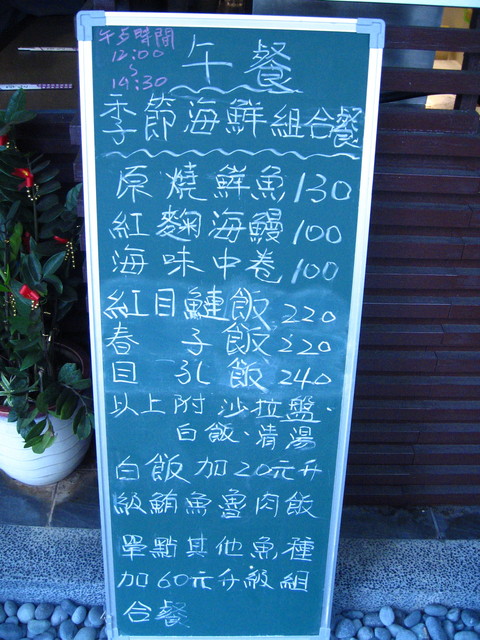 午歺時間
12:00
~
14:30
午餐
季節海鮮組合餐
原燒鮮魚130
紅麴海鰻100
海味中卷100
紅目鰱飯220
春子飯220
目孔飯240
以上附沙拉盤、
白飯、清湯
白飯加20元升
級鮪魚魯肉飯
單點其他魚種
加60元升級組
合餐